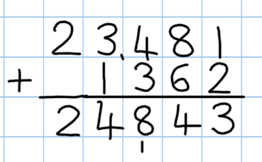 23,481
+ 1362
24843
1